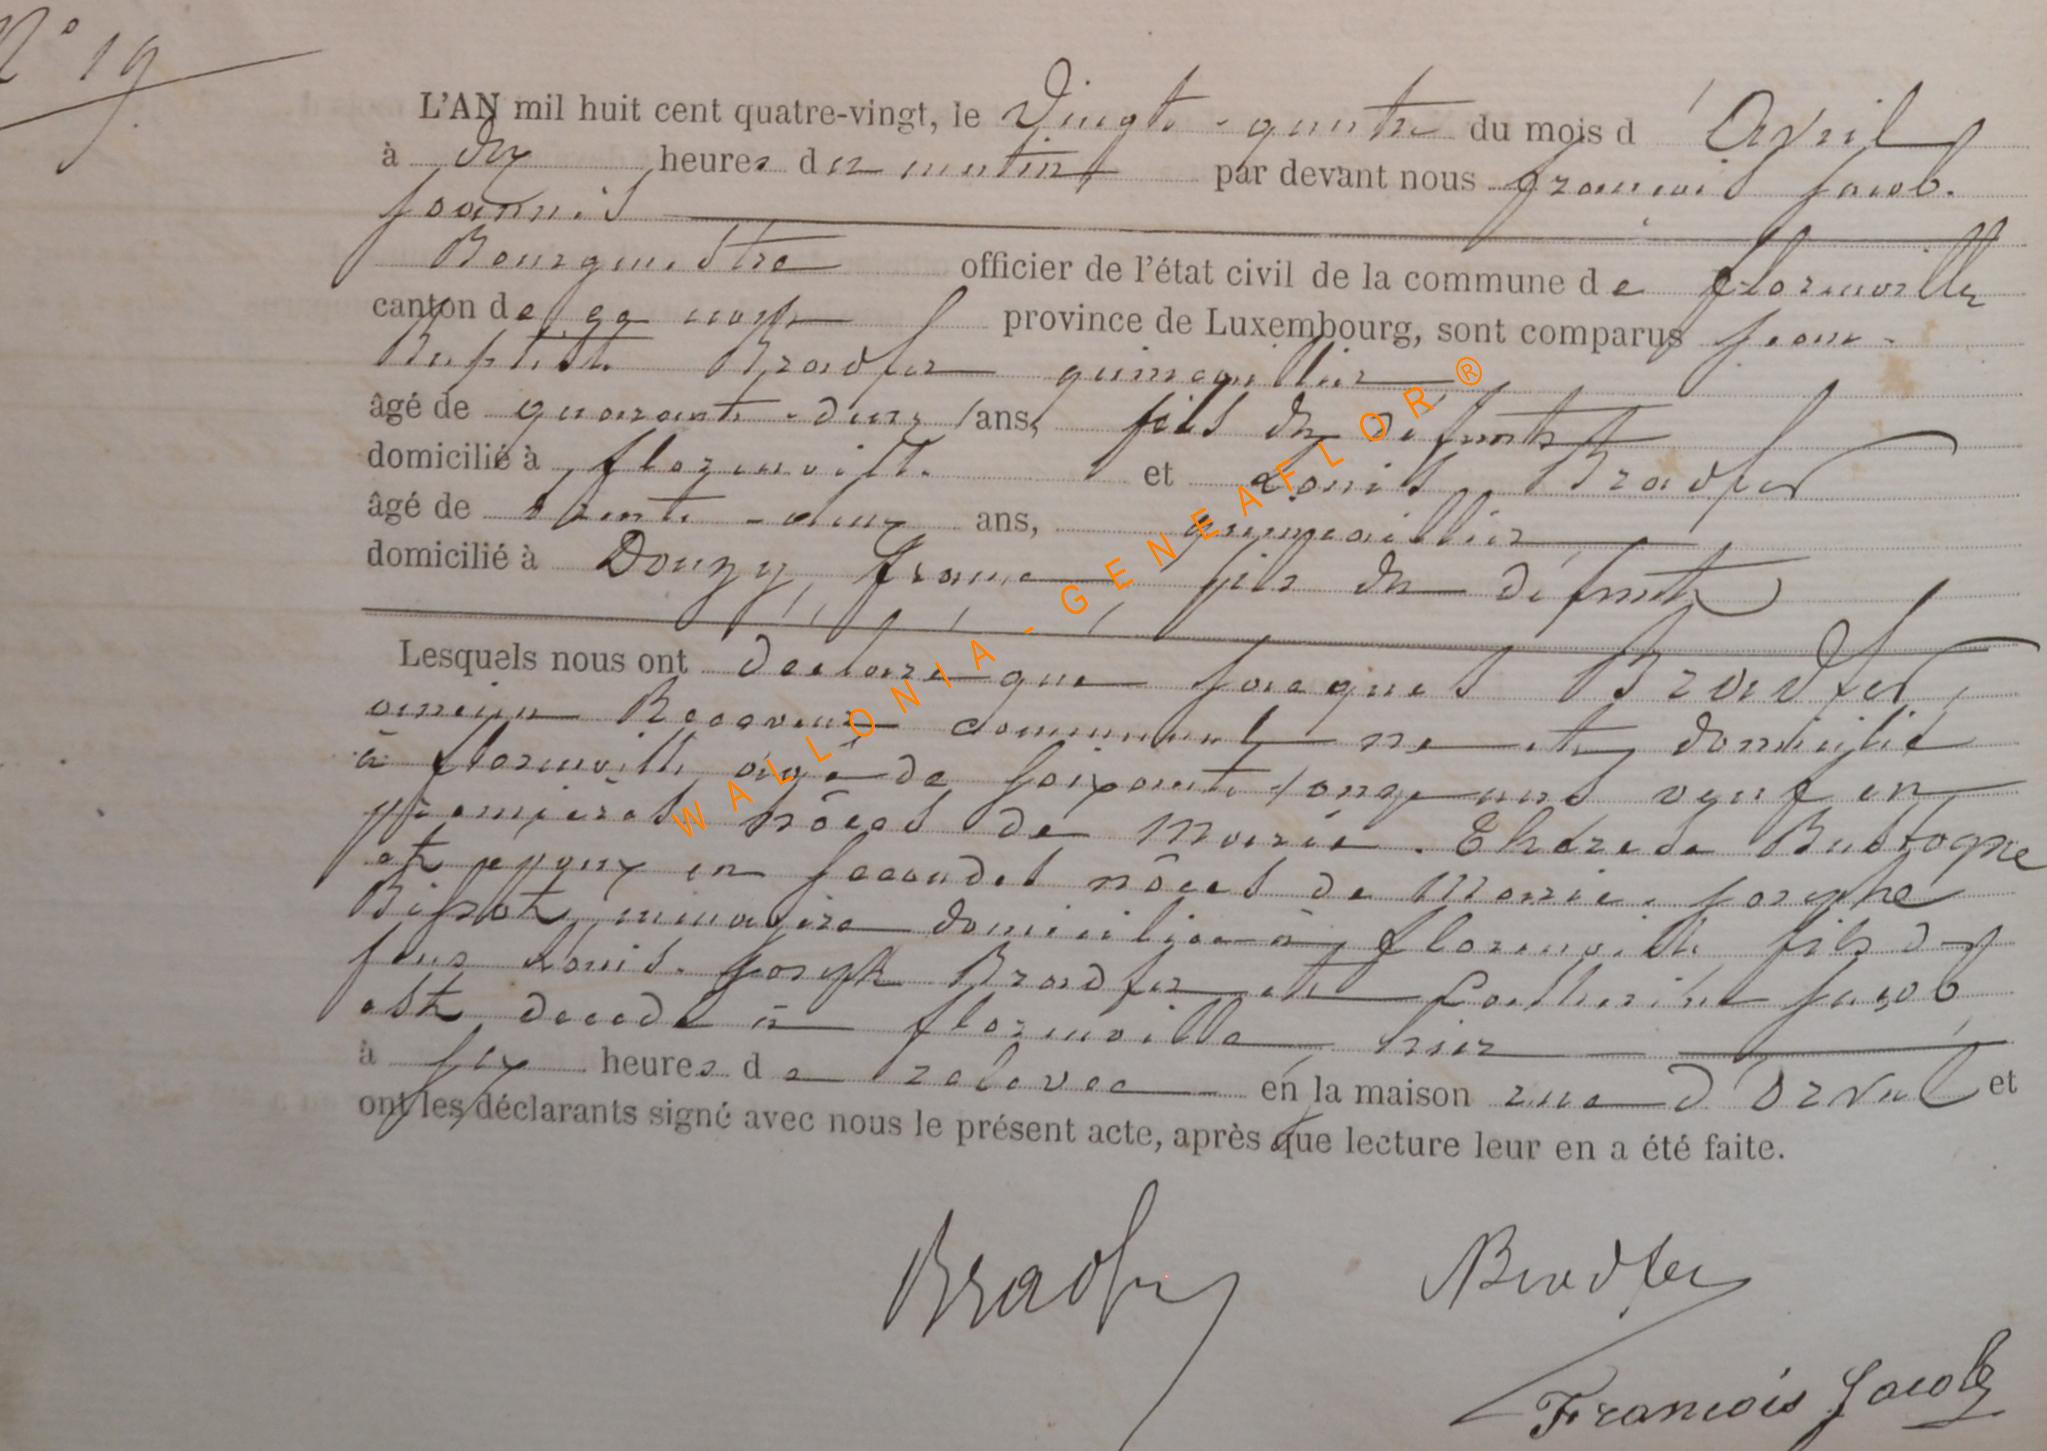 N° 19
L'AN mil huit cent quatre-vingt, le Vingt-quatre du mois d'Avril
à dix heures du matin par devant nous François Jacob.
Joannis
Bourgmestre officier de l'état civil de la commune de Florenville
canton de province de Luxembourg, sont comparus Jean-
Baptiste Bradfer quincaillier
âgé de quarante-deux ans, fils du défunt
domicilié à Florenville et Louis Bradfer
âgé de trente-deux ans, quincaillier
domicilié à Douzy, France fils du défunt
Lesquels nous ont déclaré que Jacques Bradfer,
ancien Receveur communal né et domicilié
à Florenville âgé de soixante/onze ans veuf en
premières nôces de Marie-Thérèse Bastogne
et époux en secondes nôces de Marie-Josephe
domiciliée à Florenville fils de
feus Louis-Joseph Bradfer et Catherine Jacob
est décédé à Florenville hier
à six heures de relevée en la maison rue d'Orval et
ont les déclarants signé avec nous le présent acte, après que lecture leur en a été faite.
Bradfer Bradfer
François Jacob
WALLONIA-GENEAFLOR®